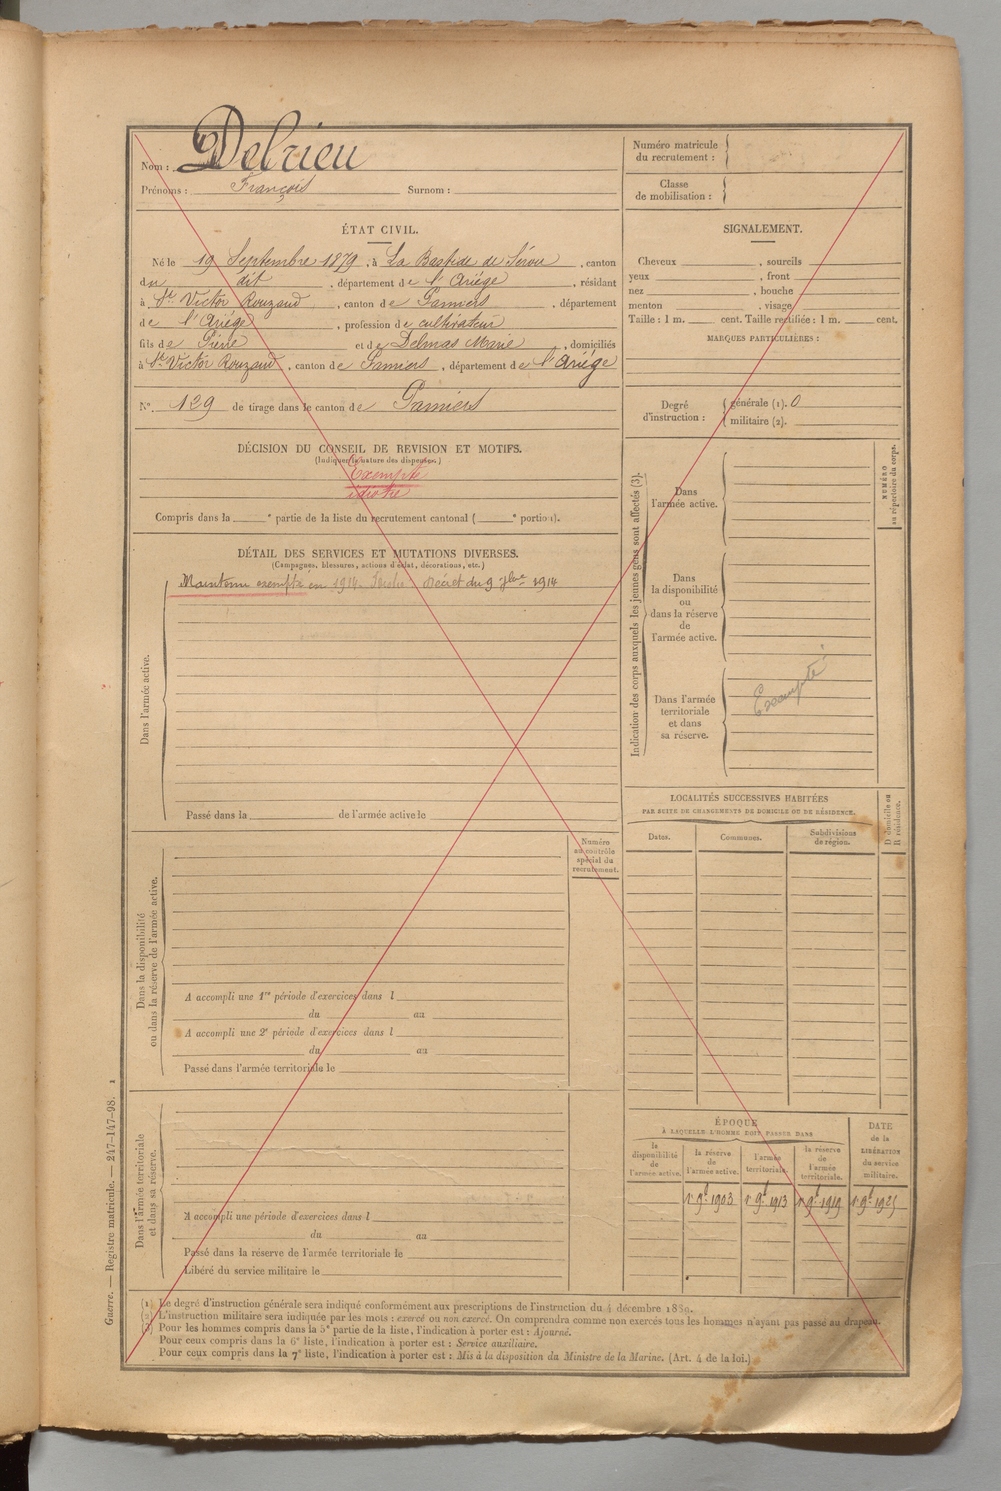 Nom : Delrieu
Prénoms : François Surnom :
Numéro matricule
du recrutement :
Classe
de mobilisation :
ÉTAT CIVIL.
Né le 19 Septembre 1879, à La Bastide de Sérou, canton
du dit, département de l'Ariége, résidant
à St Victor Rouzaud, canton de Pamiers, département
de l'Ariége, profession de cultivateur
fils de Pierre et de Delmas Marie, domiciliés
à St Victor Rouzaud, canton de Pamiers, département de l'Ariége
N° 129 de tirage dans le canton de Pamiers
SIGNALEMENT.
Cheveux , sourcils
yeux , front
nez , bouche
menton , visage
Taille : 1 m. cent. Taille rectifiée : 1 m. cent.
MARQUES PARTICULIÈRES :
Degré
d'instruction :
générale (1). 0
militaire (2).
DÉCISION DU CONSEIL DE REVISION ET MOTIFS.
(Indiquer la nature des dispenses.)
Exempté
idiotie
Compris dans la e partie de la liste du recrutement cantonal ( e portion).
DÉTAIL DES SERVICES ET MUTATIONS DIVERSES.
(Campagnes, blessures, actions d'éclat, décorations, etc.)
Maintenu exempté en 1914. décret du 9 7bre 1914
Dans l'armée active.
Passé dans la de l'armée active le
Indication des corps auxquels les jeunes gens sont affectés (3).
Dans
l'armée active.
Dans
la disponibilité
ou
dans la réserve
de
l'armée active.
Dans l'armée
territoriale
et dans
sa réserve.
Exempté
NUMÉRO
au répertoire du corps.
Dans la disponibilité
ou dans la réserve de l'armée active.
Numéro
au contrôle
spécial du
recrutement.
A accompli une 1re période d'exercices dans l
du au
A accompli une 2e période d'exercices dans l
du au
Passé dans l'armée territoriale le
LOCALITÉS SUCCESSIVES HABITÉES
PAR SUITE DE CHANGEMENTS DE DOMICILE OU DE RÉSIDENCE.
Dates.
Communes.
Subdivisions
de région.
D domicile ou
R résidence.
Dans l'armée territoriale
et dans sa réserve.
A accompli une période d'exercices dans l
du au
Passé dans la réserve de l'armée territoriale le
Libéré du service militaire le
ÉPOQUE
À LAQUELLE L'HOMME DOIT PASSER DANS
la
disponibilité
de
l'armée active.
la réserve
de
l'armée active.
l'armée
territoriale.
la réserve
de
l'armée
territoriale.
DATE
de la
LIBÉRATION
du service
militaire.
1er 9bre 1903 1er 9bre 1913 1er 9bre 1919 1er 9bre 1925
(1) Le degré d'instruction générale sera indiqué conformément aux prescriptions de l'instruction du 4 décembre 1889.
(2) L'instruction militaire sera indiquée par les mots : exercé ou non exercé. On comprendra comme non exercés tous les hommes n'ayant pas passé au drapeau.
(3) Pour les hommes compris dans la 5e partie de la liste, l'indication à porter est : Ajourné.
Pour ceux compris dans la 6e liste, l'indication à porter est : Service auxiliaire.
Pour ceux compris dans la 7e liste, l'indication à porter est : Mis à la disposition du Ministre de la Marine. (Art. 4 de la loi.)
Guerre. — Registre matricule. — 247-147-98. 1